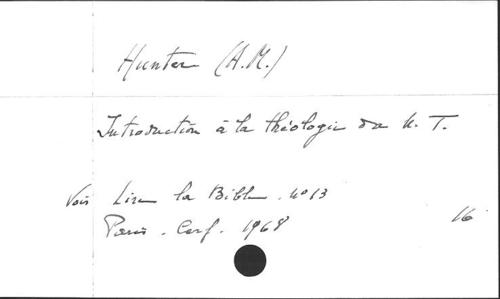 Hunter (A.M.)
Introduction à la théologie du N. T.
Voir Lire la Bible. no 13
Paris. Cerf. 1968
16